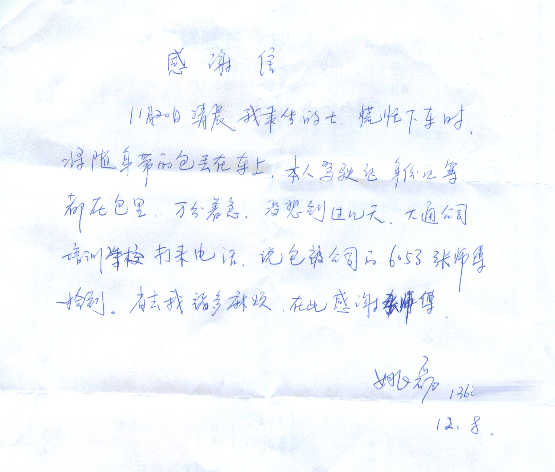 感谢信
11月20日清晨我乘坐的士.慌忙下车时,
将随身带的包丢在车上,本人驾驶证身份证等
都在包里.万分着急,没想到过几天.大通公司
培训学校打来电话.说包被公司的6053张师傅
捡到。省去我诸多麻烦.在此感谢张师傅.
姚磊 136
12.8.